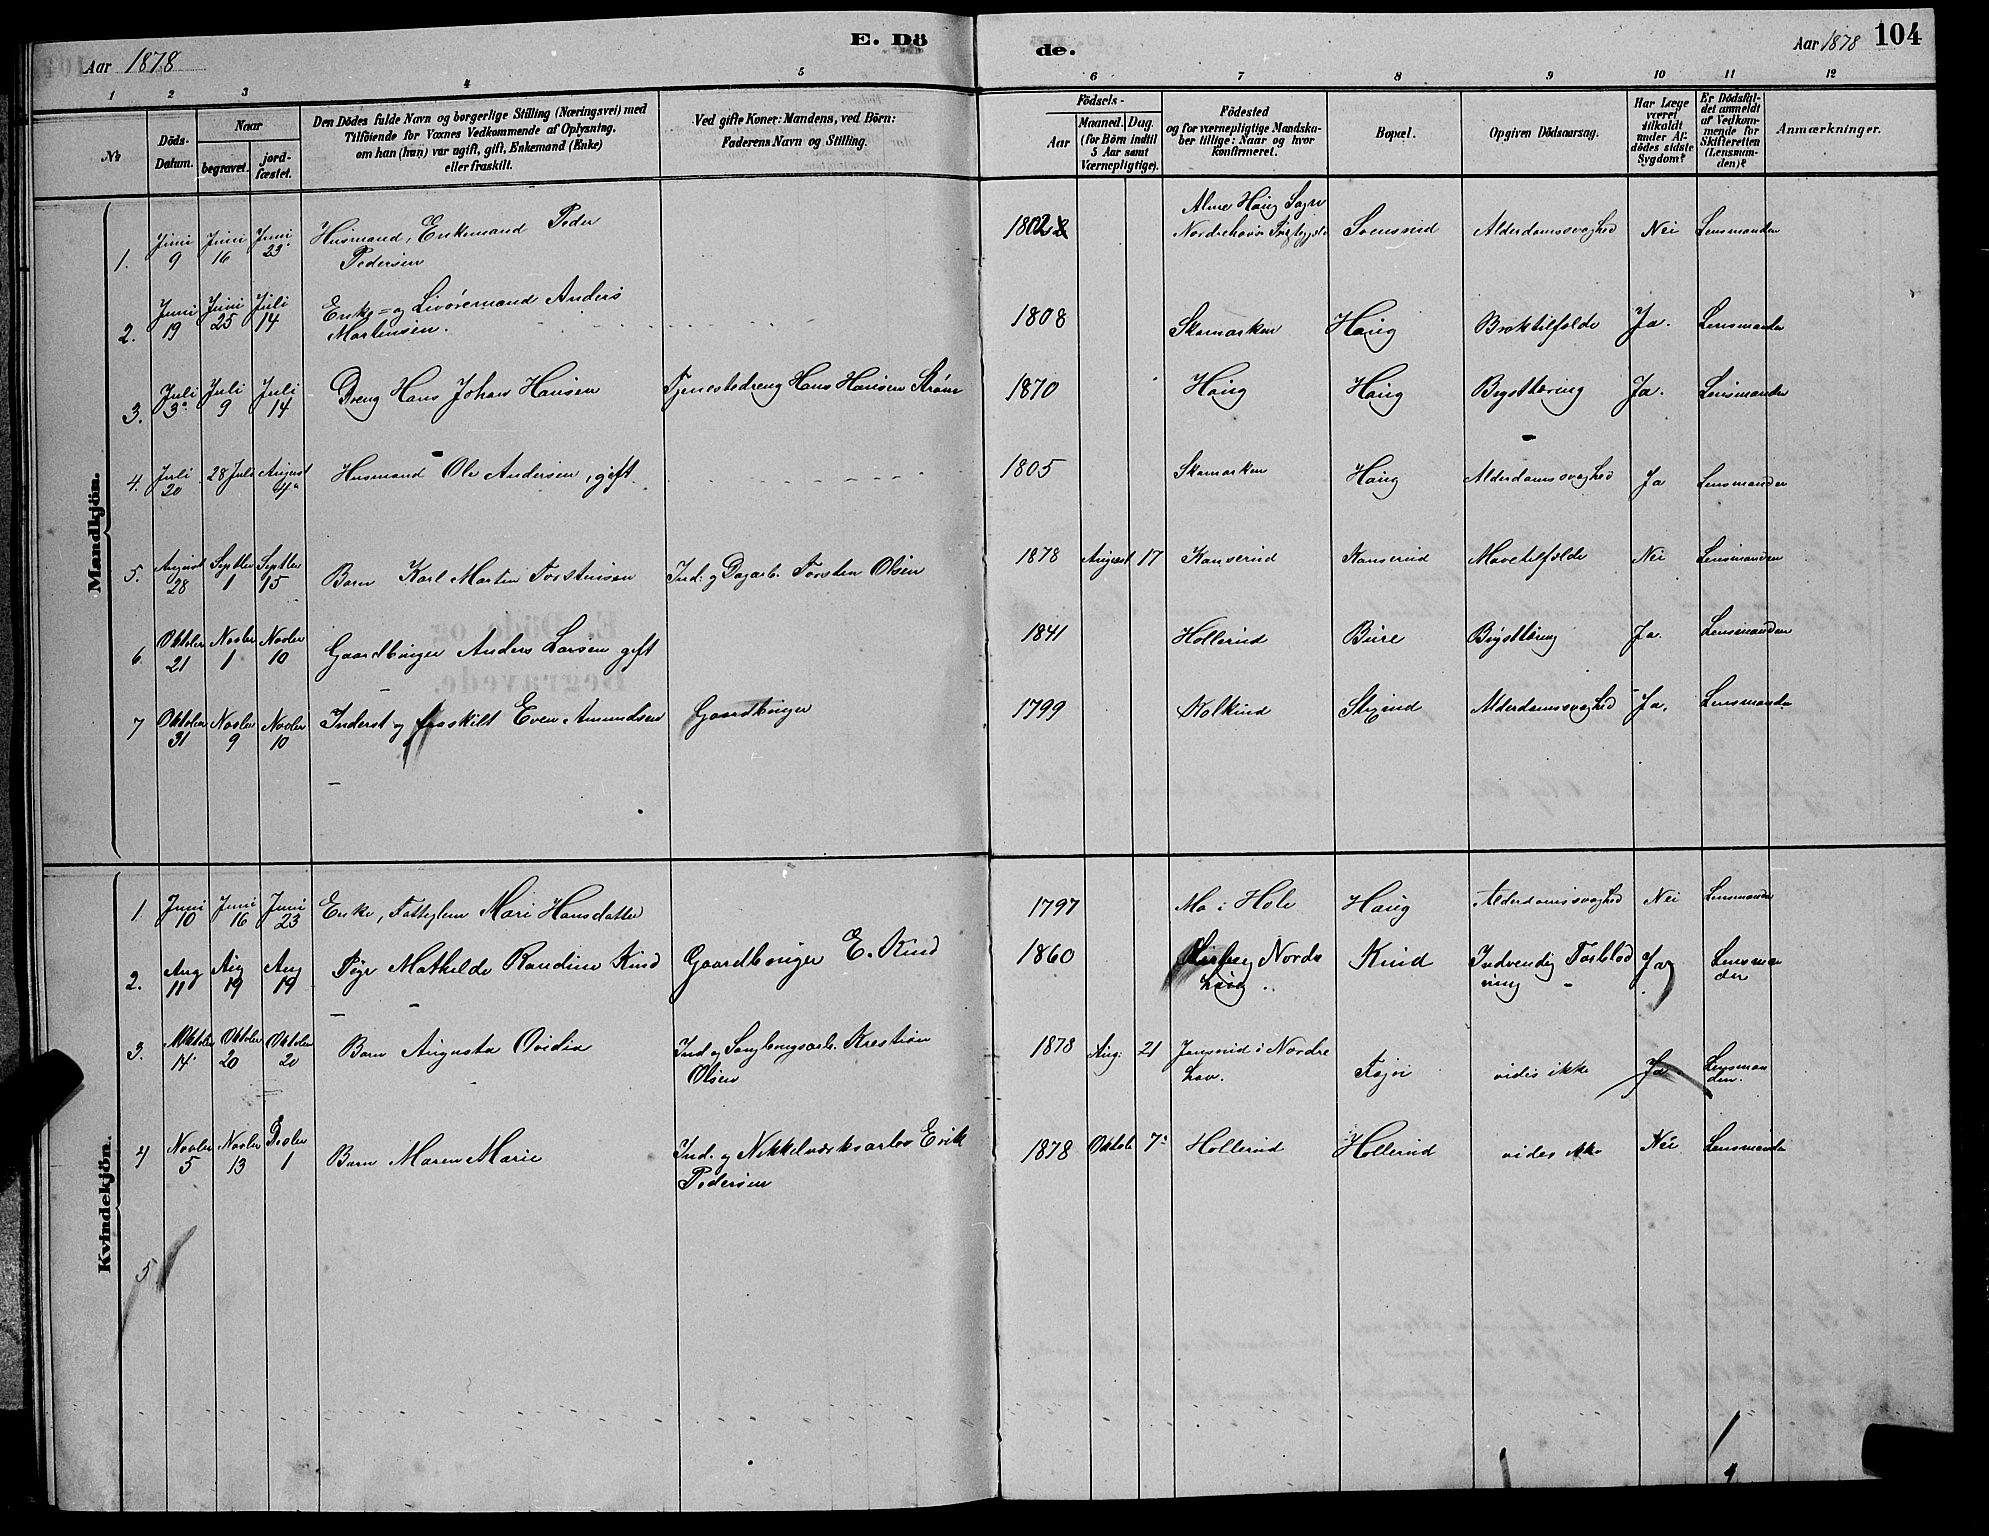 Aar 1878
E. Dö
de.
Aar 1878
104
1 2 3 4 5 6 7 8 9 10 11 12
No
Döds-
Datum.
Naar
begravet.
jord-
fæstet.
Den Dödes fulde Navn og borgerlige Stilling (Næringsvei) med
Tilföiende for Voxnes Vedkommende af Oplysning,
om han (hun) var ugift, gift, Enkemand (Enke)
eller fraskilt.
Ved gifte Koner: Mandens, ved Börn:
Faderens Navn og Stilling.
Födsels-
Aar
Maaned. Dag.
(for Börn indtil
5 Aar samt
Værnepligtige).
Födested
og for værnepligtige Mandska-
ber tillige: Naar og hvor
konfirmeret.
Bopæl.
Opgiven Dödsaarsag.
Har Læge
været
tilkaldt
under Af-
dödes sidste
Sygdom?
Er Dödsfal-
det anmeldt
af Vedkom-
mende for
Skifteretten
(Lensman-
den)?
Anmærkninger.
Mandkjön.
1. Juni 9 Juni 16 Juni 23 Husmand, Enkemand Peder
Pedersen
1802 Haug Sogn
Svensrud Alderdomssvaghed Nei Lensmanden
2. Juni 19 Juni 25 Juli 14 Enke- og Livöremand Anders
Martinsen.
1808 Skamarken Haug Broktilfælde Ja. Lensmanden
3. Juli 3 Juli 9 Juli 14 Dreng Hans Johan Hansen Tjenestedreng Hans Hansen Ström 1870 Haug Haug Brysttæring Ja. Lensmanden
4. Juli 20 28 Juli August 4 Husmand Ole Andersen, gift 1805 Skamarken Haug Alderdomssvaghed Ja Lensmanden
5. August 28 Septbr 1 Septbr 15 Barn Karl Martin Torstensen Ind. og Dagarb. Torsten Olsen 1878 August 17 Kanserud Kanserud Mavetilfælde Nei Lensmanden
6. Oktober 21 Novbr 1 Novbr 10 Gaardbruger Anders Larsen gift 1841 Hollerud Bure Brysttæring Ja. Lensmanden
7 Oktober 31 Novbr 9 Novbr 10 Inderst og fraskilt Even Amundsen Gaardbruger 1799 Alderdomssvaghed Ja. Lensmanden
Kvindekjön.
1. Juni 10 Juni 16 Juni 23 Enke, Fattiglem Mari Hansdatter 1797 Mo i Hole Haug Alderdomssvaghed Nei Lensmanden
2. Aug 11 Aug 19 Aug 19 Pige Mathilde Randine Kind Gaardbruger E. Kind 1860 Nordre
Kind Indvendig Forblöd
ning Ja Lensman
den
3. Oktober 14 Oktober 20 Oktober 20 Barn Augusta Ovidia Ind. og Sagbrugsarb. Kristian
Olsen
1878 Aug. 21 Jonsrud i Nordre
vides ikke Ja Lensman
den.
4 Novbr 5 Novbr 13 Desbr 1 Barn Maren Marie Ind. og Nikkelværksarb. Erik
Pedersen
1878 Oktob 7 Hollerud Hollerud vides ikke Nei Lensmanden
5